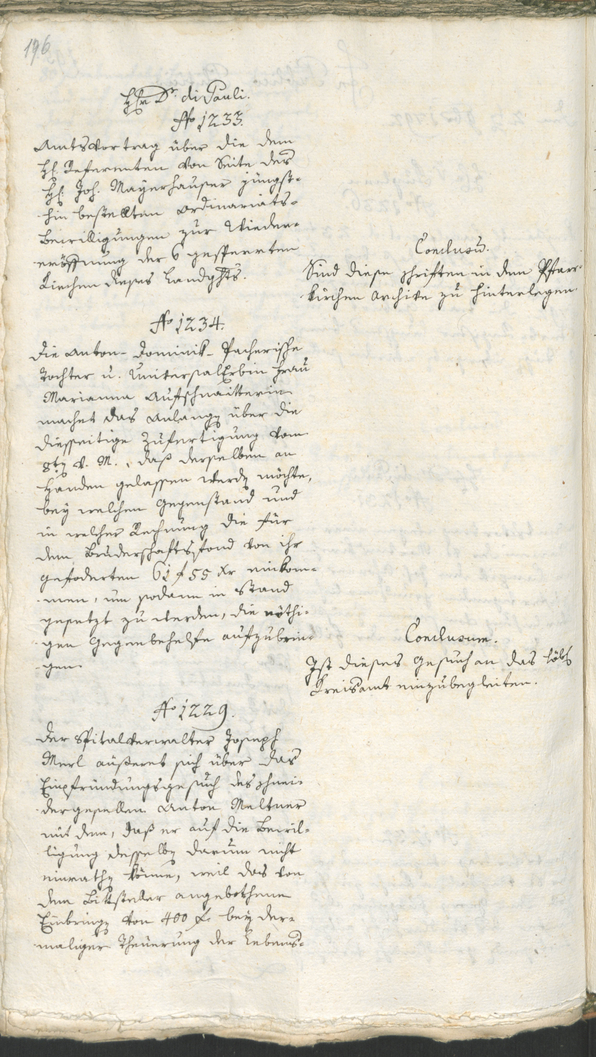 196
Hr Dr. di Pauli.
No 1233.
Amtsvortrag über die dem
H. Referenten von Seite des
H. Joh. Mayerhauser jüngst-
hin bestellten Ordinariats-
Bewilligungen zur Wieder-
eröffnung der 6 gesperrten
Kirchen dieses Landgchts.
Conclusum.
Sind diese Schriften in dem Pfarr-
kirchen Archive zu hinterlegen.
No 1234.
Die Anton-Dominik-Pacherische
Tochter u. Universalerbin Frau
Marianna Aufschnaitterin
machet das Anlangen über die
diesseitige Zufertigung vom
v. M., daß derselben an
Handen gelassen werden möchte,
bey welchen Gegenstand und
in welcher Rechnung die für
dem Bruderschaftsfond von ihr
geforderten 61 f 55 xr einkom-
men, um sodann in Stand
gesetzt zu werden, die nöthi-
gen Gegenbehelfe aufzubrin-
gen.
Conclusum.
Ist dieses Gesuch an das löbl.
Kreisamt einzubegleiten.
No 1229.
Der Spitalverwalter Joseph
Merl äußeret sich über das
Einpfründungsgesuch des Schnei-
dergesellen Anton Meltner
mit dem, daß er auf die Bewil-
ligung desselben darum nicht
einrathen könne, weil das von
dem Bittsteller angebothene
Einbringen von 400 f bey der-
maliger Theuerung der Lebens-